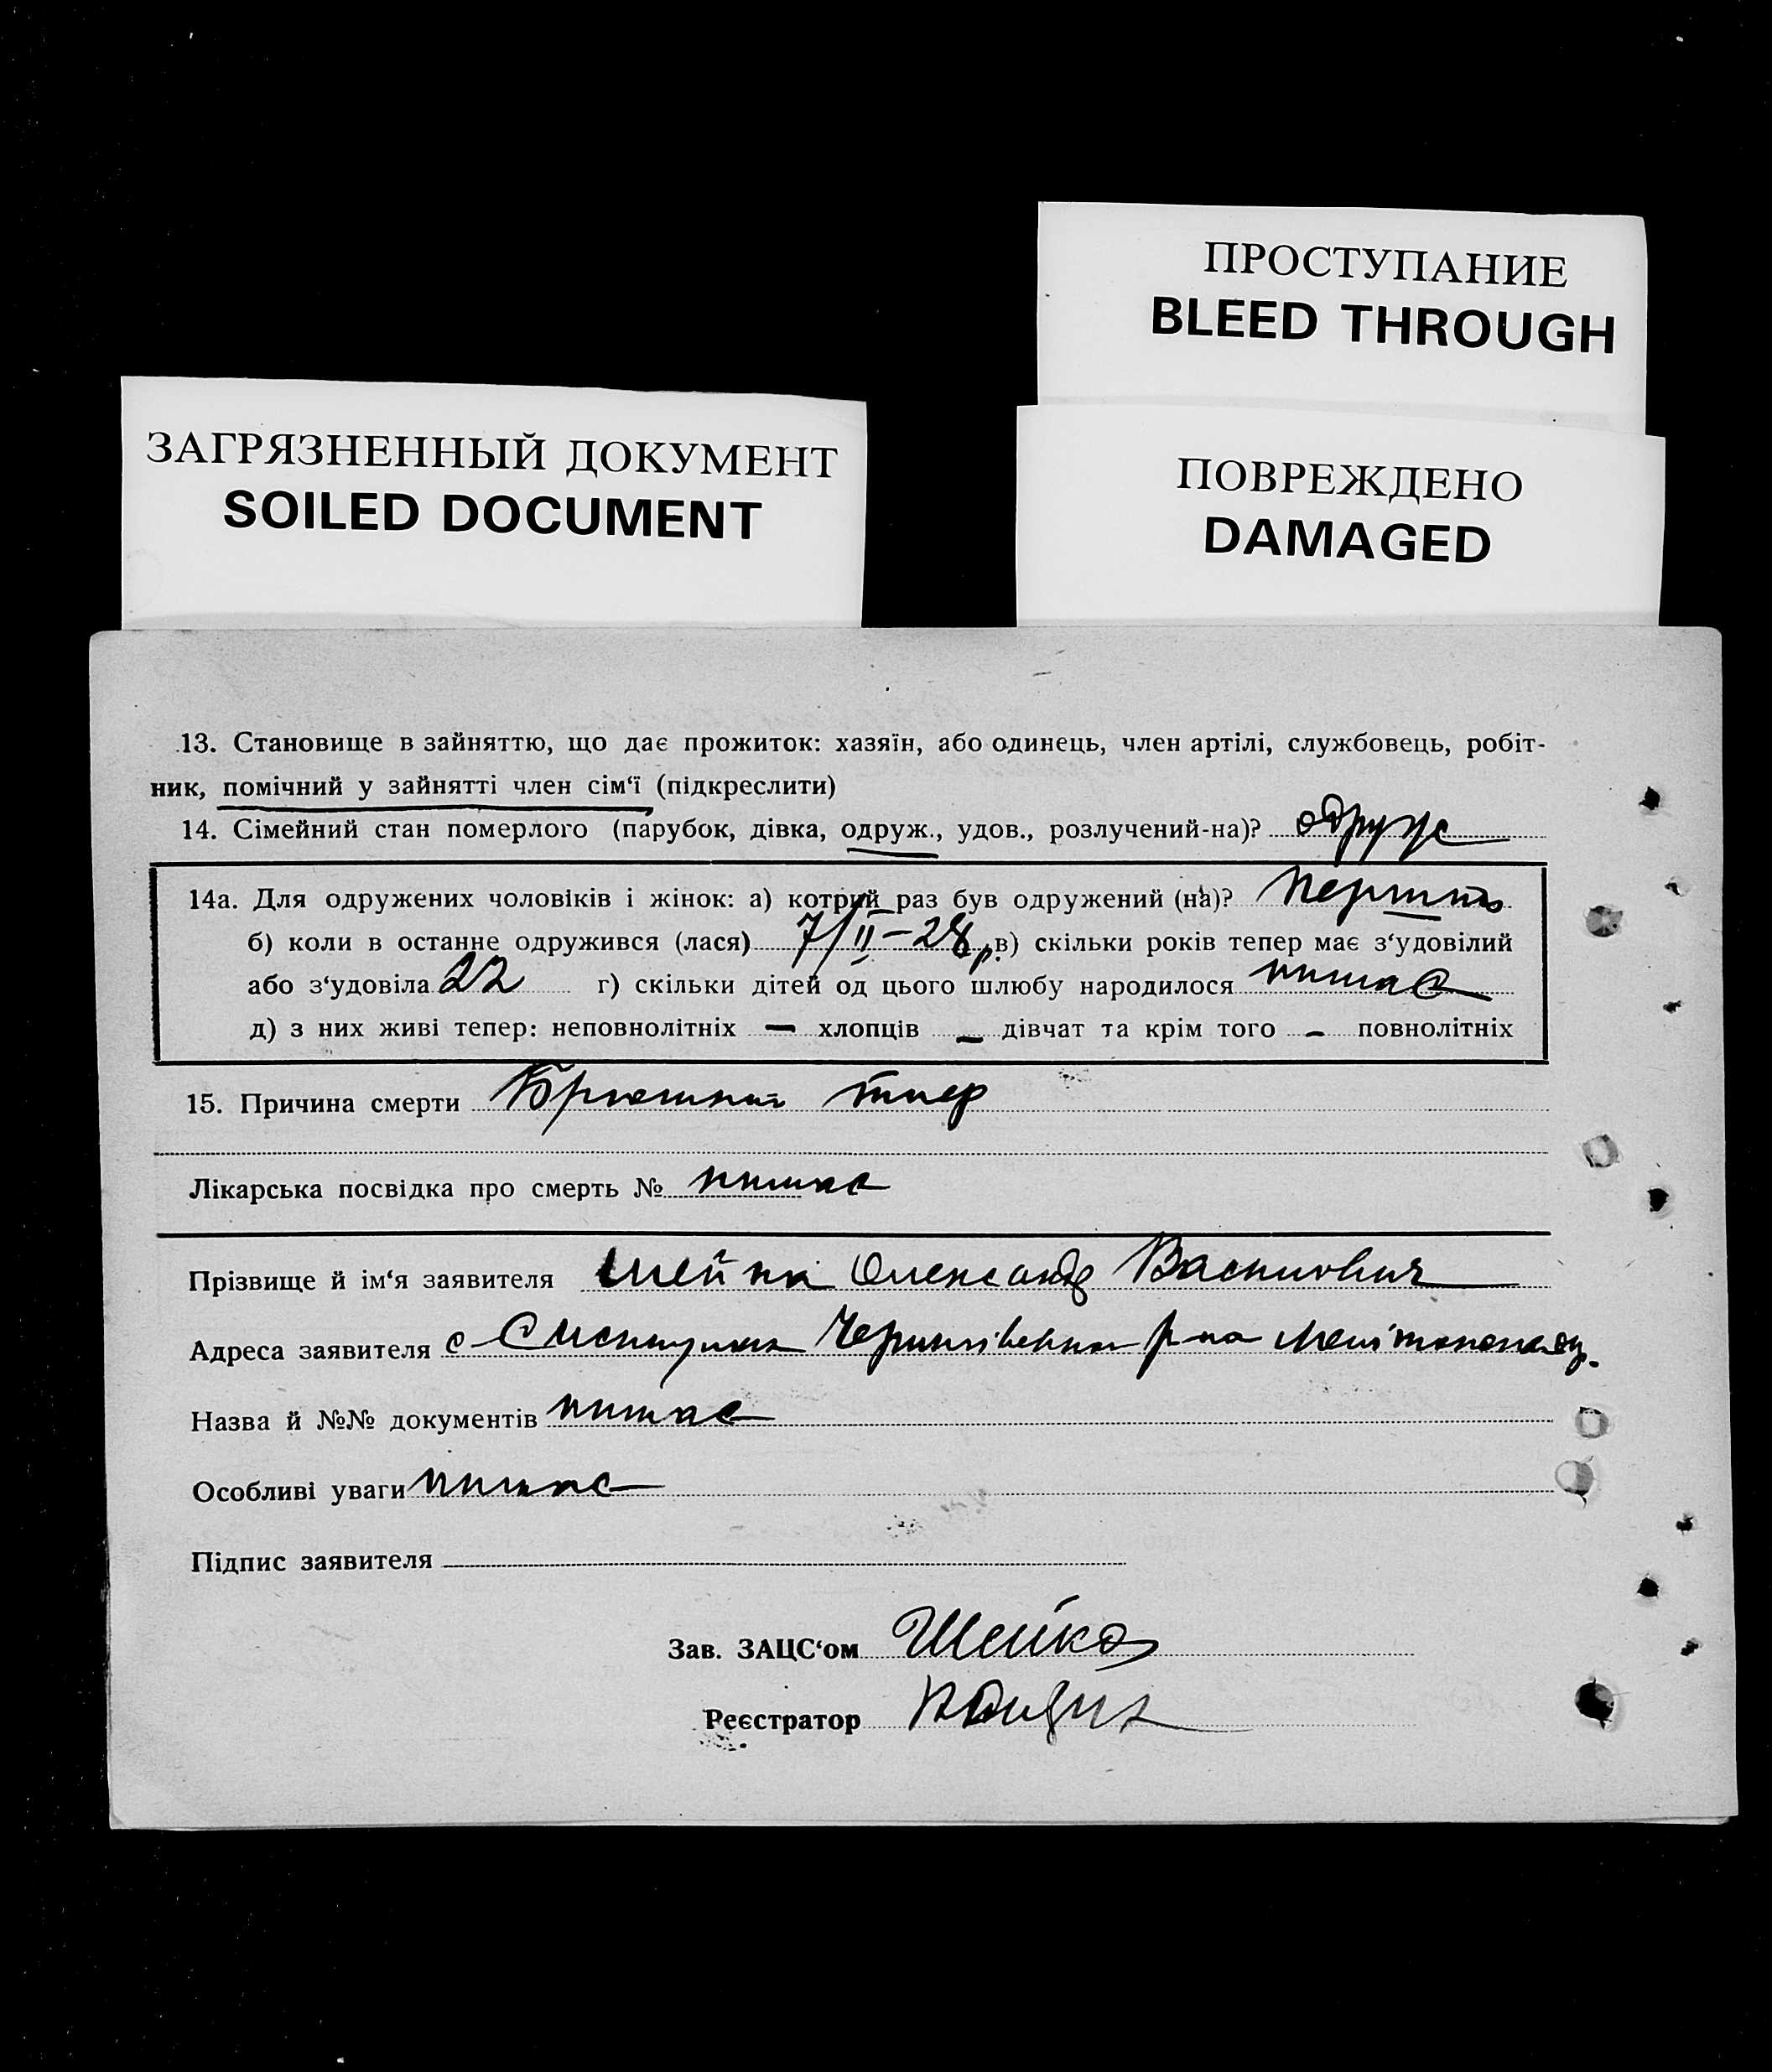 ПРОСТУПАНИЕ
BLEED THROUGH
ЗАГРЯЗНЕННЫЙ ДОКУМЕНТ
SOILED DOCUMENT
ПОВРЕЖДЕНО
DAMAGED
13. Становище в зайняттю, що дає прожиток: хазяїн, або одинець, член артілі, службовець, робіт-
ник, помічний у зайнятті член сім‘ї (підкреслити)
14. Сімейний стан померлого (парубок, дівка, одруж., удов., розлучений-на)? одруж
14а. Для одружених чоловіків і жінок: а) котрий раз був одружений (на)? перший
б) коли в останнє одружився (лася) 7/II-28 р. в) скільки років тепер має з‘удовілий
або з‘удовіла 22 г) скільки дітей од цього шлюбу народилося немає
д) з них живі тепер: неповнолітніх — хлопців — дівчат та крім того — повнолітніх
15. Причина смерти Брюшний тиф
Лікарська посвідка про смерть № немає
Прізвище й ім‘я заявителя Шейка Олександр Васильович
Адреса заявителя с р-на
Назва й №№ документів немає
Особливі уваги немає
Підпис заявителя
Зав. ЗАЦС‘ом Шейко
Реєстратор